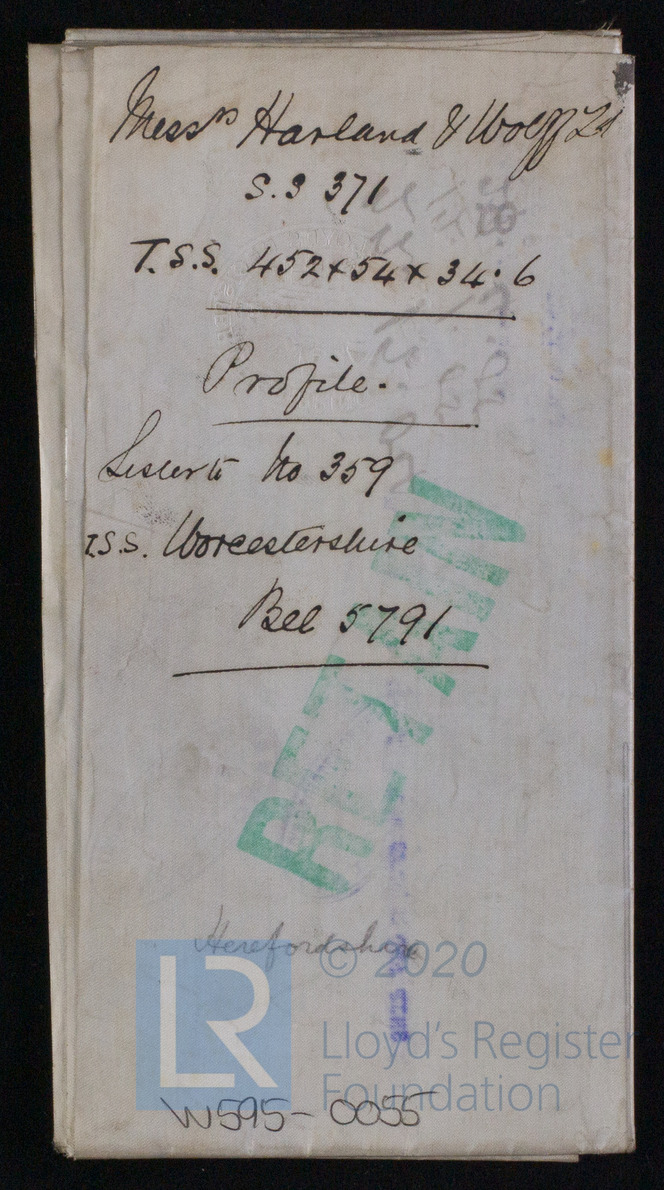 Messrs Harland & Wolff Ld
S.S 371
T.S.S. 452x54x34.6
Profile.
Sister to No 359
T.S.S. Worcestershire
Bel 5791
RETAIN
Herefordshire
LR
© 2020
Lloyd's Register
Foundation
W595-0055